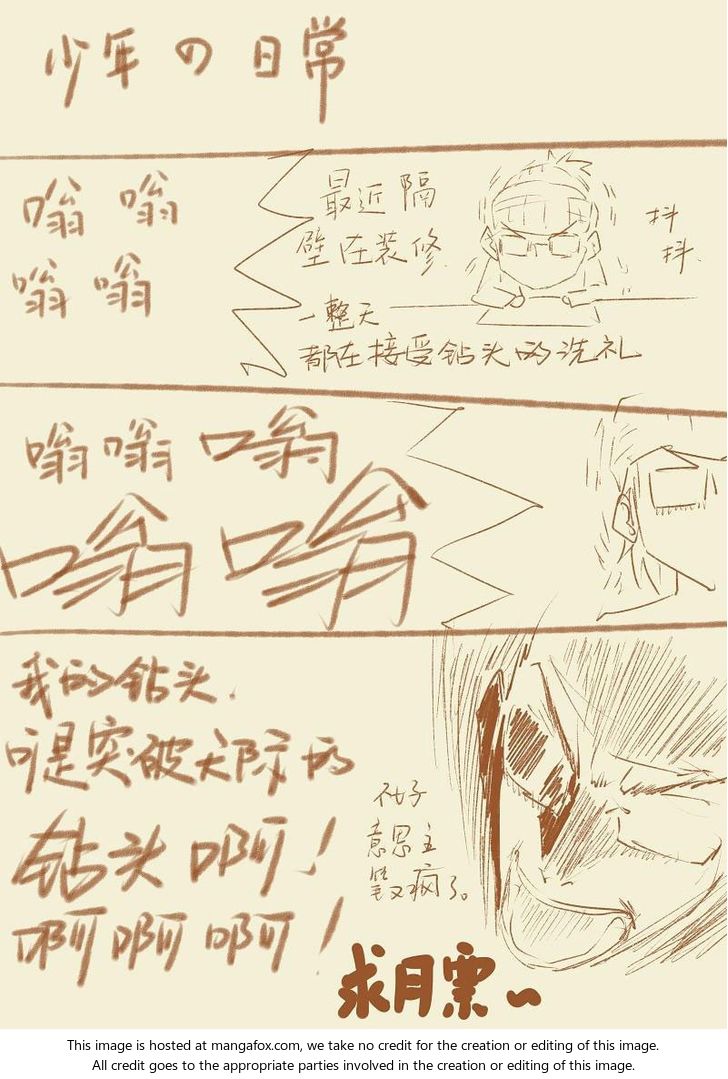 少年の日常
嗡 嗡
嗡 嗡
最近隔
壁在装修
一整天
都在接受钻头的洗礼
抖
抖
嗡嗡嗡
嗡嗡
我的钻头
可是突破天际的
钻头啊！
啊啊啊！
不好
意思主
笔又疯了。
求月票~
This image is hosted at mangafox.com, we take no credit for the creation or editing of this image.
All credit goes to the appropriate parties involved in the creation or editing of this image.